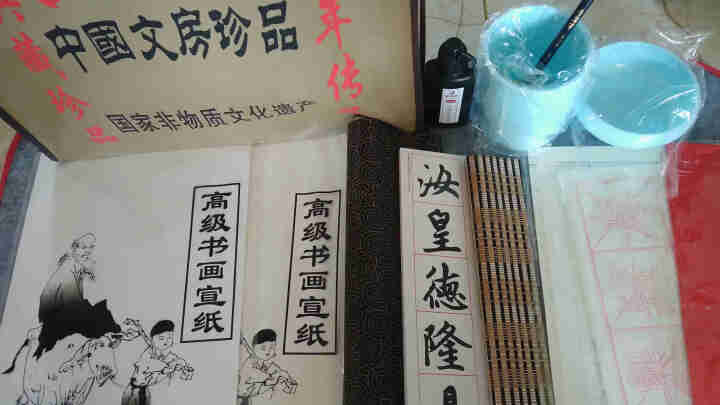 中國文房珍品
国家非物质文化遗产
藏·珍品
年传
高级书画宣纸
高级书画宣纸
汝皇德隆